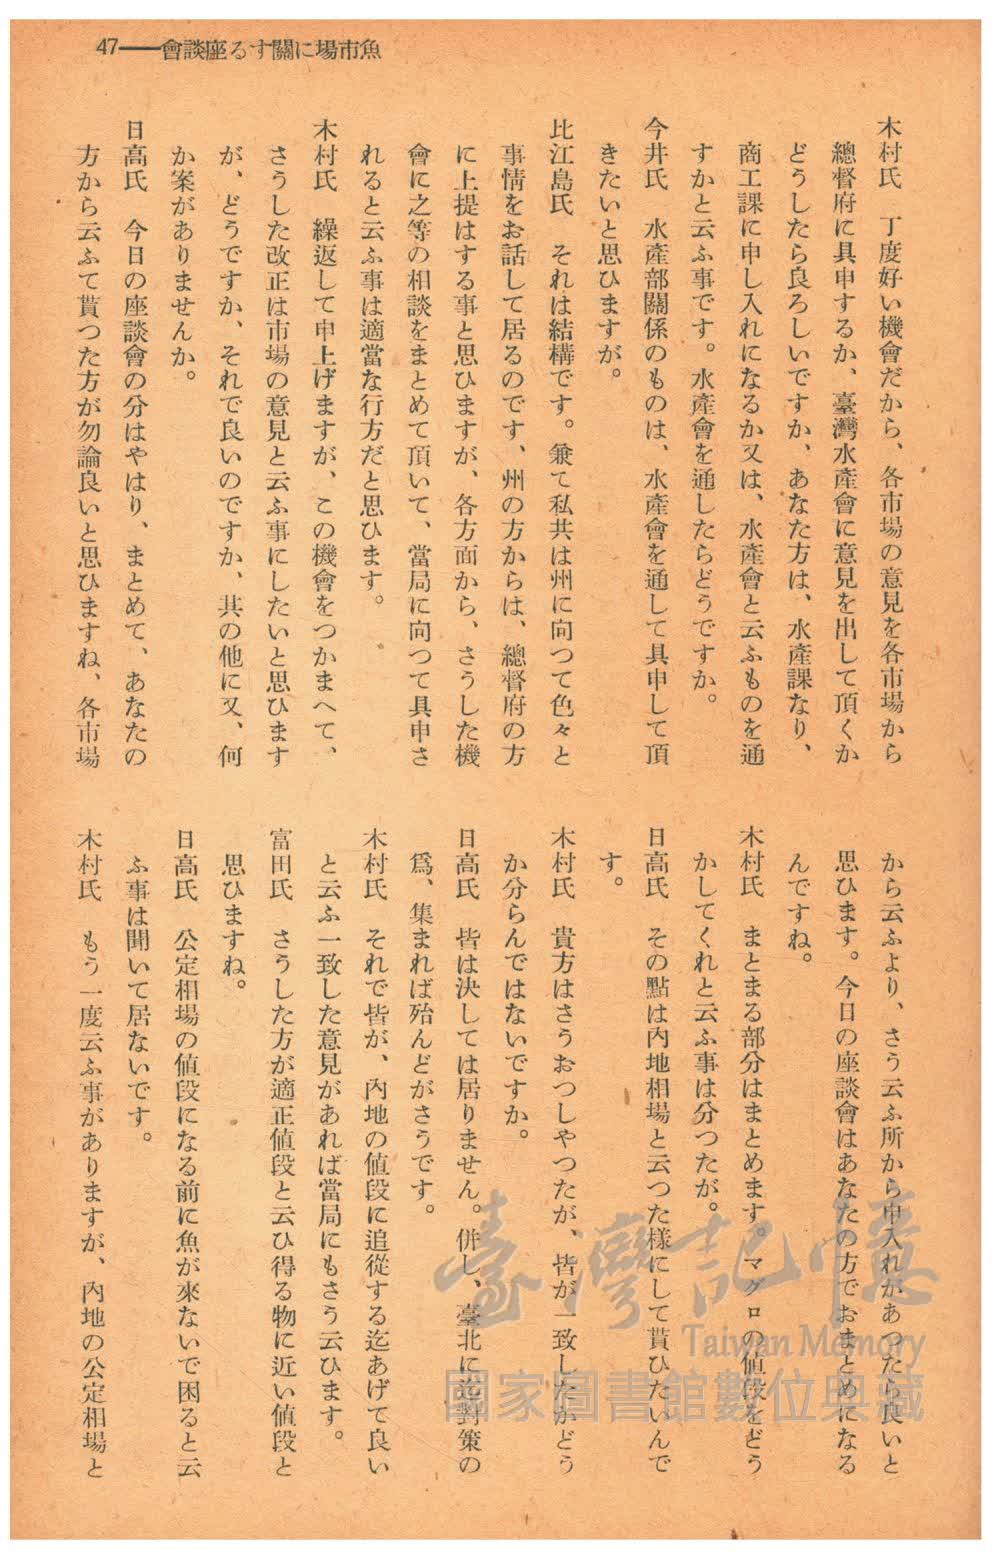 47──會談座るす關に場市魚
木村氏　丁度好い機會だから、各市場の意見を各市場から
總督府に具申するか、臺灣水產會に意見を出して頂くか
どうしたら良ろしいですか、あなた方は、水產課なり、
商工課に申し入れになるか又は、水產會と云ふものを通
すかと云ふ事です。水產會を通したらどうですか。
今井氏　水產部關係のものは、水產會を通して具申して頂
きたいと思ひますが。
比江島氏　それは結構です。兼て私共は州に向つて色々と
事情をお話して居るのです、州の方からは、總督府の方
に上提はする事と思ひますが、各方面から、さうした機
會に之等の相談をまとめて頂いて、當局に向つて具申さ
れると云ふ事は適當な行方だと思ひます。
木村氏　繰返して申上げますが、この機會をつかまへて、
さうした改正は市場の意見と云ふ事にしたいと思ひます
が、どうですか、それで良いのですか、其の他に又、何
か案がありませんか。
日高氏　今日の座談會の分はやはり、まとめて、あなたの
方から云ふて貰つた方が勿論良いと思ひますね、各市場
から云ふより、さう云ふ所から申入れがあつたら良いと
思ひます。今日の座談會はあなたの方でおまとめになる
んですね。
木村氏　まとまる部分はまとめます。マグロの値段をどう
かしてくれと云ふ事は分つたが。
日高氏　その點は內地相場と云つた樣にして貰ひたいんで
す。
木村氏　貴方はさうおつしやつたが、皆が一致したかどう
か分らんではないですか。
日高氏　皆は決しては居りません。併し、臺北に迄對策の
爲、集まれば殆んどがさうです。
木村氏　それで皆が、內地の値段に追從する迄あげて良い
と云ふ一致した意見があれば當局にもさう云ひます。
富田氏　さうした方が適正値段と云ひ得る物に近い値段と
思ひますね。
日高氏　公定相場の値段になる前に魚が來ないで困ると云
ふ事は聞いて居ないです。
木村氏　もう一度云ふ事がありますが、內地の公定相場と
臺灣記憶
Taiwan Memory
國家圖書館數位典藏